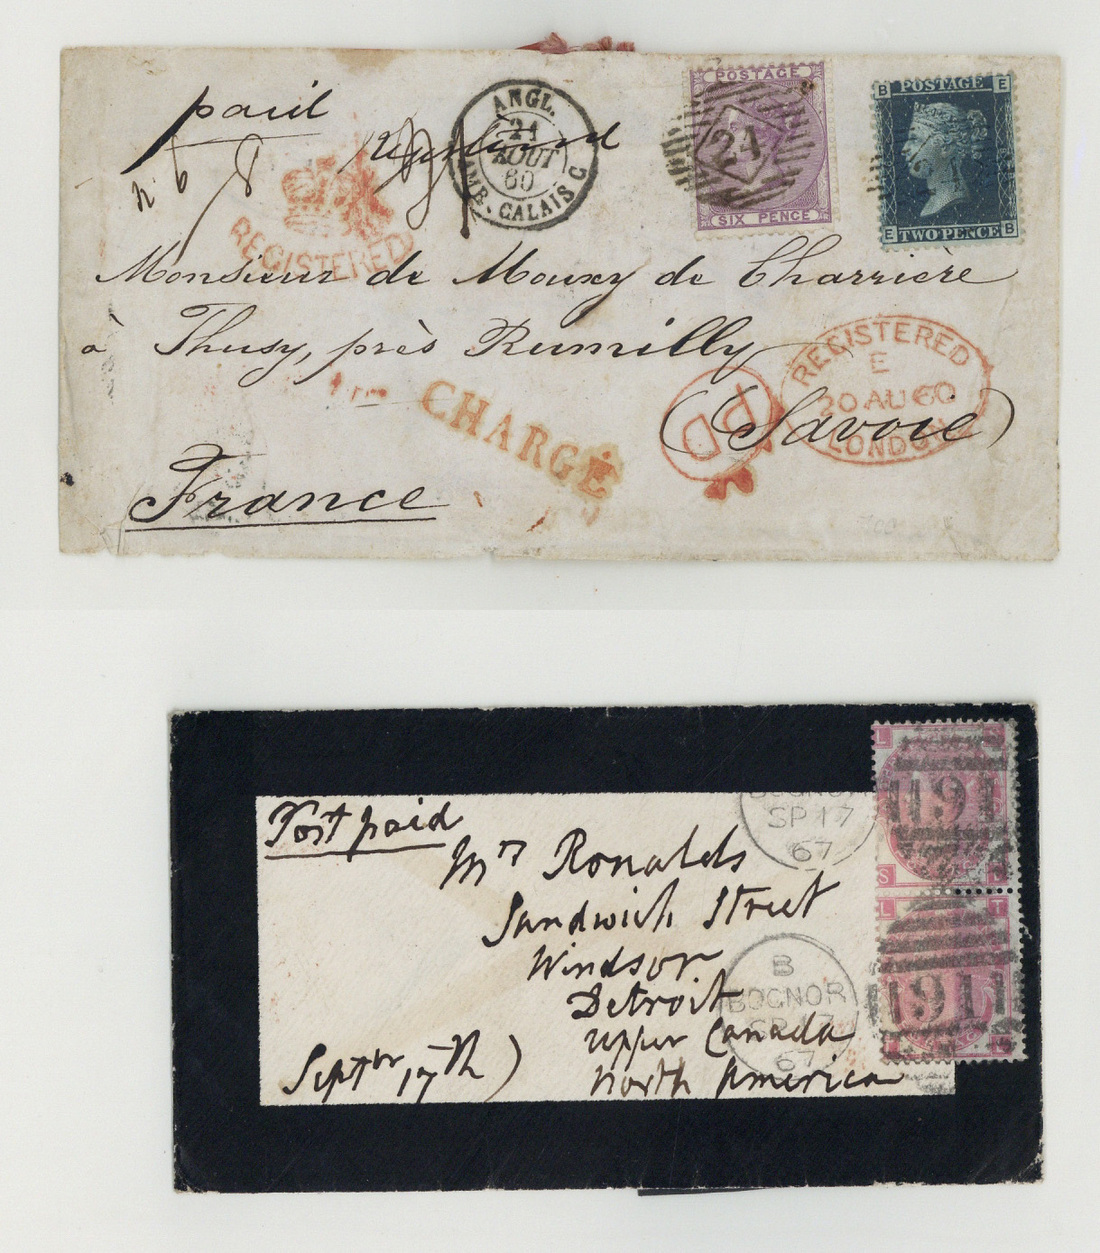 paid
No 8
REGISTERED
ANGL.
21
AOUT
60
AMB. CALAIS C
POSTAGE
24
SIX PENCE
B POSTAGE E
E TWO PENCE B
Monsieur de Mouxy de Charrière
à Thusy, près Rumilly
(Savoie)
France
CHARGÉ
PD
REGISTERED
E
20 AU 60
LONDON
Post paid
Mrs Ronalds
Sandwich Street
Windsor
Detroit
Upper Canada
North America
Septbr 17th)
BOGNOR
SP 17
67
B
BOGNOR
SP 17
67
L
191
S
L T
191